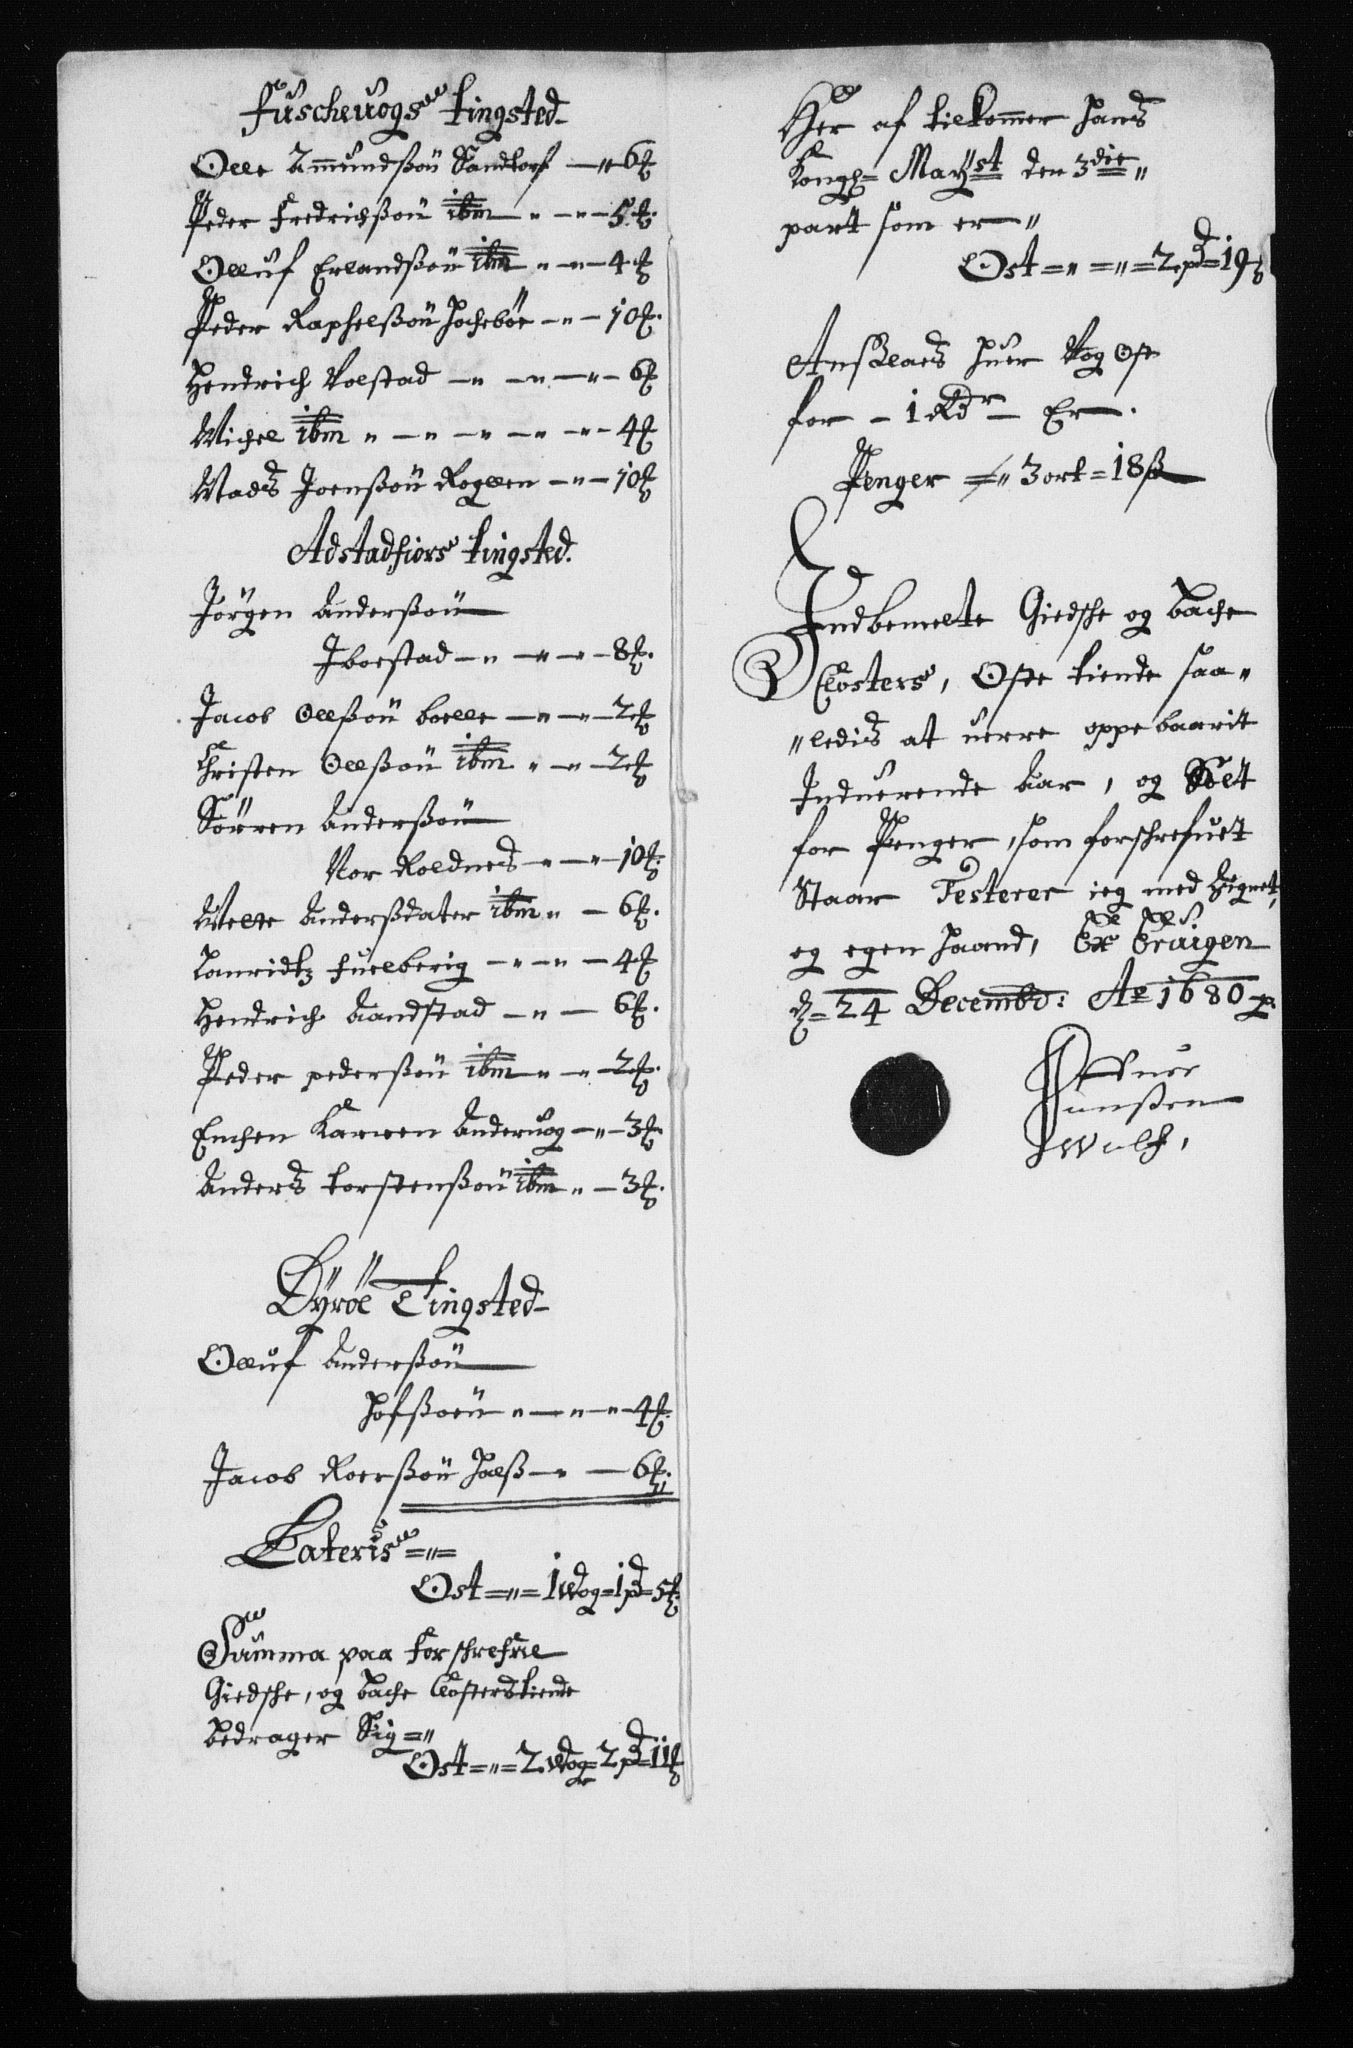 Fuschevogs tingsted
Olle Amundßøn Sandtorf — 6 ℔
Peder Fredrichßøn ibm — 5 ℔
Olluf Erlandßøn ibm — 4 ℔
Peder Raphelßøn Hochebøe — 10 ℔
Hendrich Volstad — 6 ℔
Michel ibm — 4 ℔
Mads Joenßøn Roglen — 10 ℔
Adstadfiors tingsted.
Jørgen Anderßøn
Iboestad — 8 ℔
Jacob Ollßøn boelle — 2 ℔
Christen Ollßøn ibm — 2 ℔
Sørren Anderßøn
Nor Roldnes — 10 ℔
Anderßdater ibm — 6 ℔
Lauridtz Fuelberig — 4 ℔
Hendrich Aandstad — 6 ℔
Peder pederßøn ibm — 2 ℔
Enchen Karren Andervog — 3 ℔
Anders torstenßøn ibm — 3 ℔
Dyrøe Tingsted
Olluf Anderßøn
Hofßøen — 4 ℔
Jacob Roerßøn Halß — 6 ℔
Lateris
Ost = 1 Wog = 1 pd = 5 ℔
Summa paa forschrefne
Giedsche, og bache Closters tiende
bedrager Sig =
Ost = 2 Wog = 2 pd = 11 ℔
Her af tilkommer Hans
Kongl= Mayst den 3die
part som er
Ost = 2 pd = 19 ℔
Anslaes huer Vog Ost
for - 1 Rdr - Er.
Penger = 3 ort = 18 ß
Indbemelte Giedsche og bache
Closters, Oste tiende saa
ledis at verre oppebaarit
Induerende Aar, og Solt
for Penger, som forschrefuet
Staar Testerer ieg med Signet,
og egen Haand, Ex Craigen
d= 24 Decembr: Ao 1680
Junßen